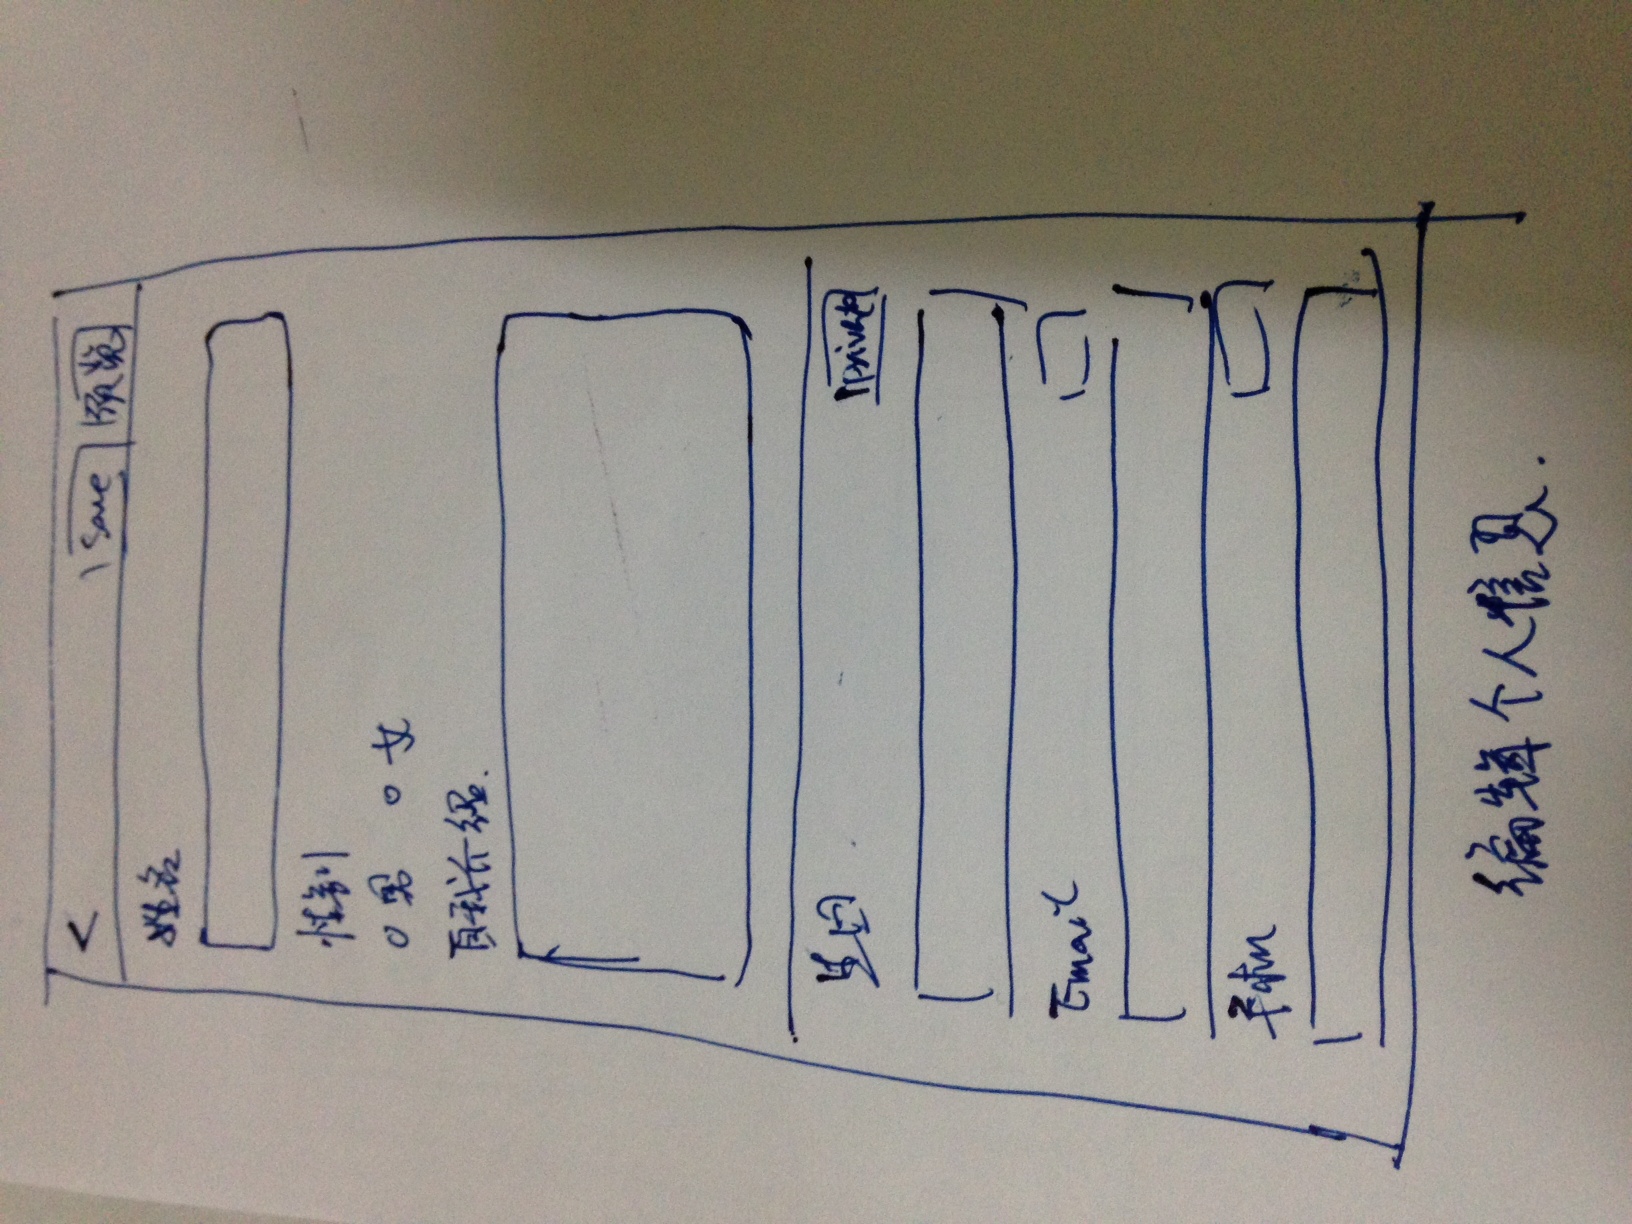 < Save 预览
姓名
性别
男 女
自我介绍.
生日 private
Email
手机
编辑个人信息.